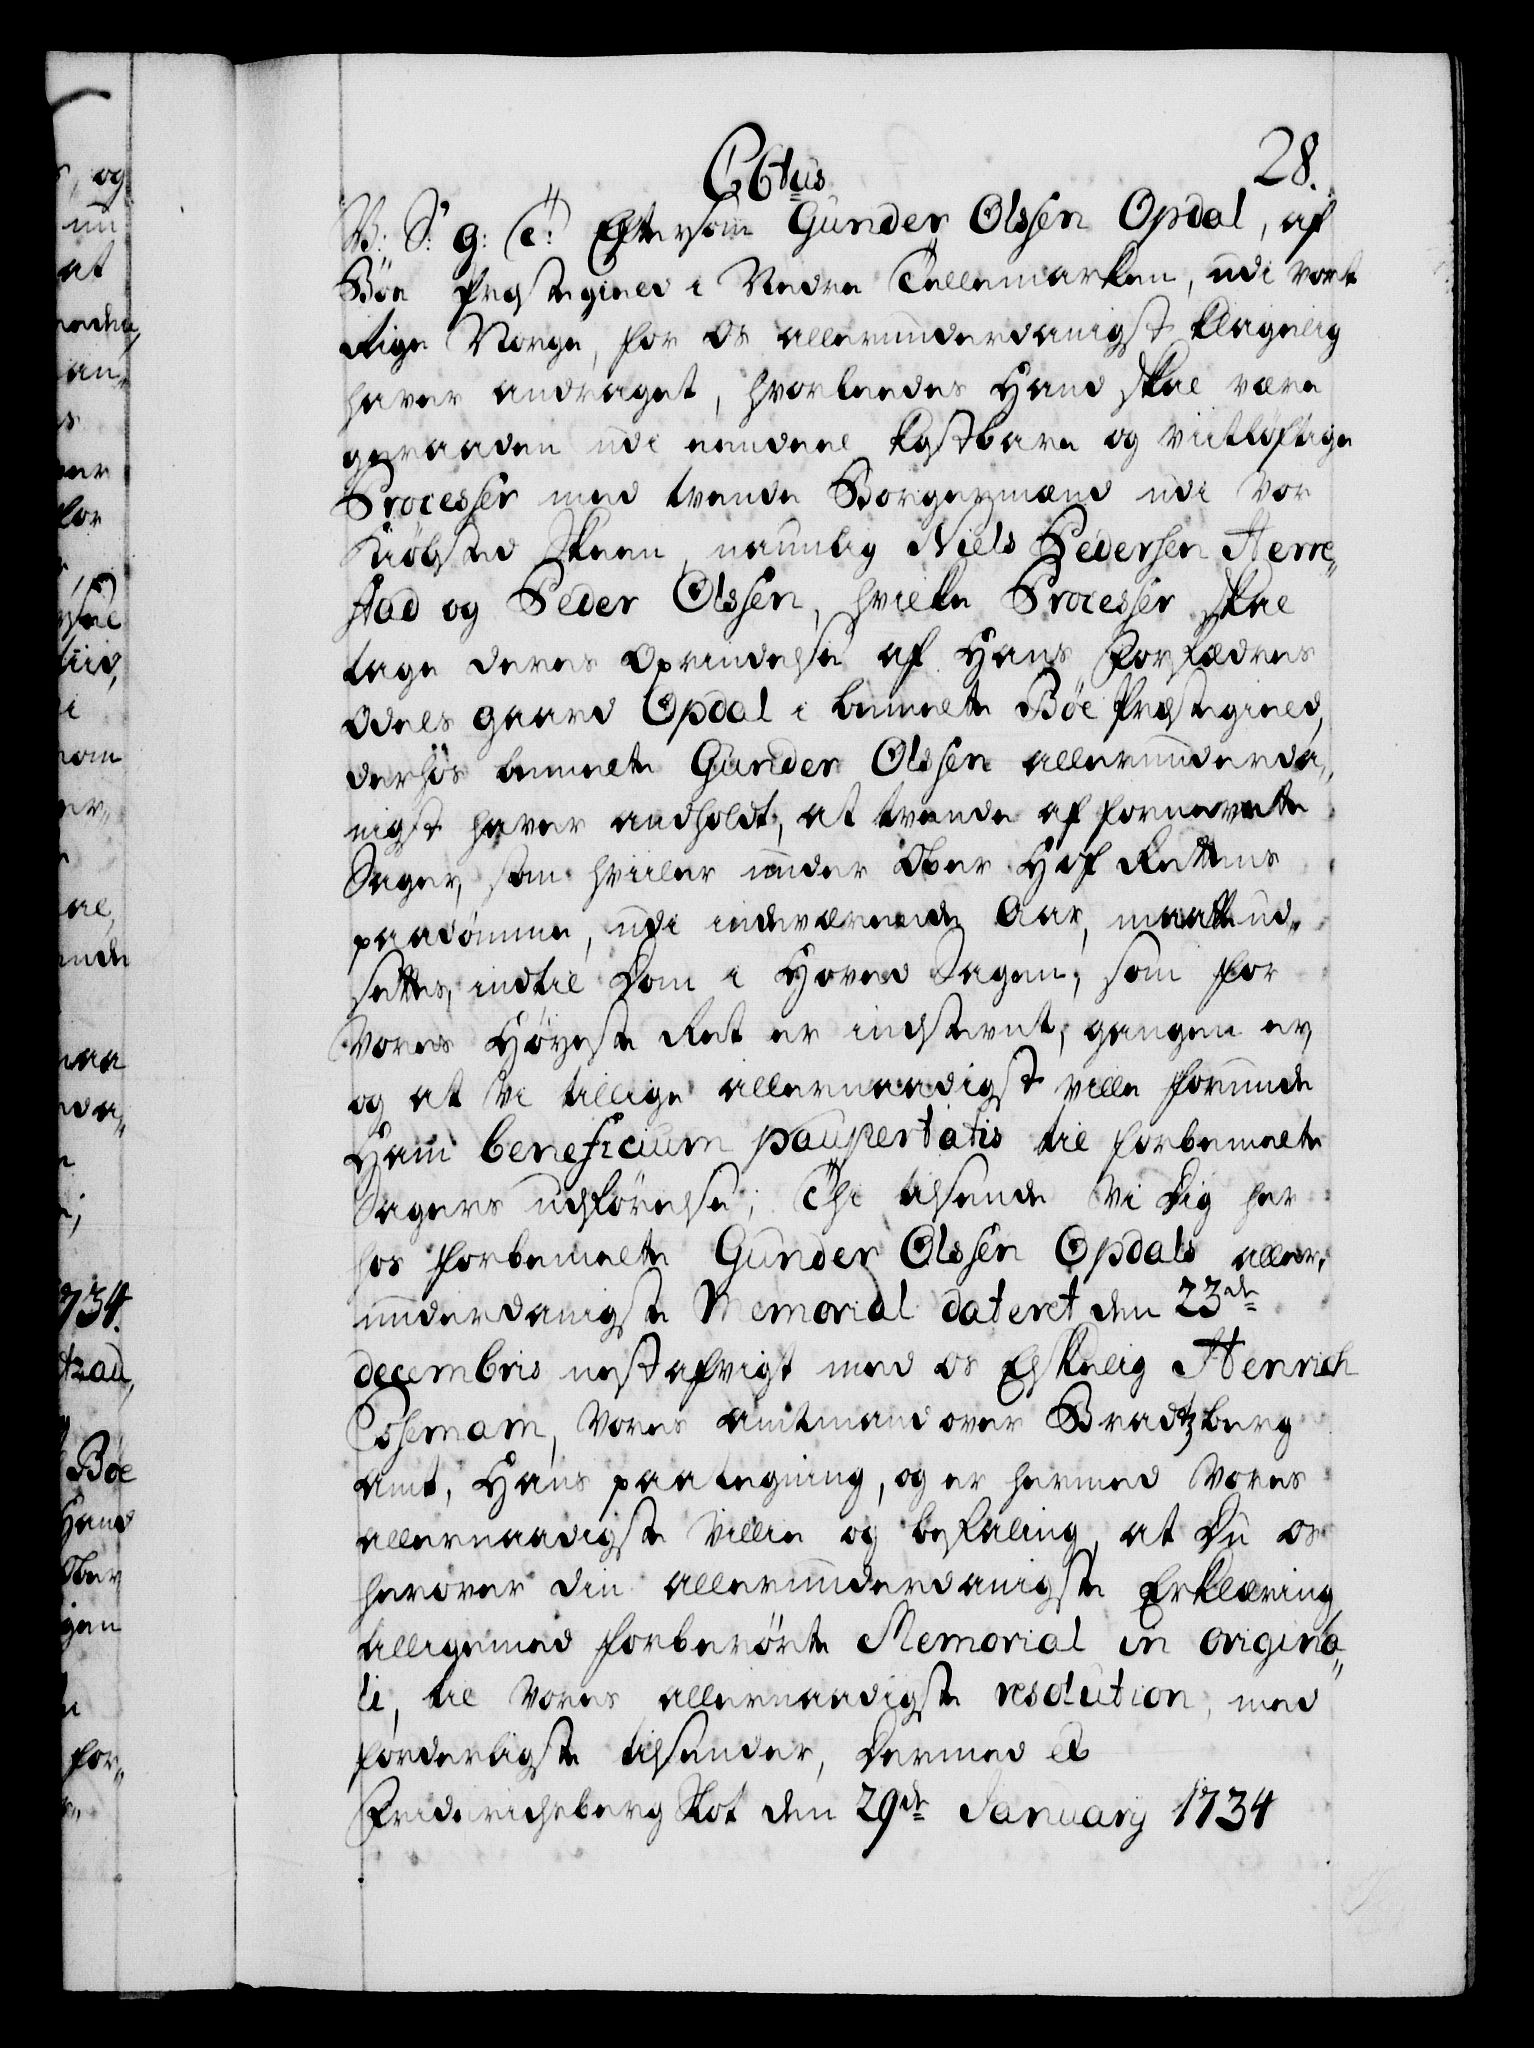 28.
C6tus
V: S: g: C: Eftersom Gunder Olssen Opdal, af
Böe Præstegield i Nedre Tellemarken, udi vort
Rige Norge, for Os allerunderdanigst klagelig
haver andraget, hvorledes Hand skal være
geraaden udi eendeel kostbare og vitløftige
Processer med tvende Borgermænd udi Vor
Kiöbsted Skeen, naunlig Niels Pedersen Herre„
stad og Peder Olssen, hvilke Processer skal
tage deres Oprindelse af Hans Forfædres
Odels gaard Opdal i bemelte Böe Præstegield,
derhos bemelte Gunder Olssen allerunderda„
nigst haver andholdt, at tvende af fornevnte
Sager, som hviiler under Ober Hof Rettens
paadömme, udi indeværende Aar, maatte ud„
settes, indtil Dom i Hoved Sagen, som for
Vores Höyeste Ret er indstevnt, gangen er,
og at Vi tillige allernaadigst ville forunde
Ham beneficium paupertatis til forbemelte
Sagers udförelse; Thi tilsende Vi Dig her
hos forbemelte Gunder Olssen Opdals aller„
underdanigste Memorial dateret den 23de
decembris nestafvigt med os Elskelig Henrich
Essemann, Vores Amtmand over Bradtzberg
Amt, Hans paategning, og er hermed Vores
allernaadigste Villie og befaling, at Du os
herover din allerunderdanigste Erklæring
tilligemed forberörte Memorial in origina„
li, til Vores allernaadigste resolution, med
forderligste tilsender, Dermed etc
Friderichsberg Slot den 29de Januarij 1734